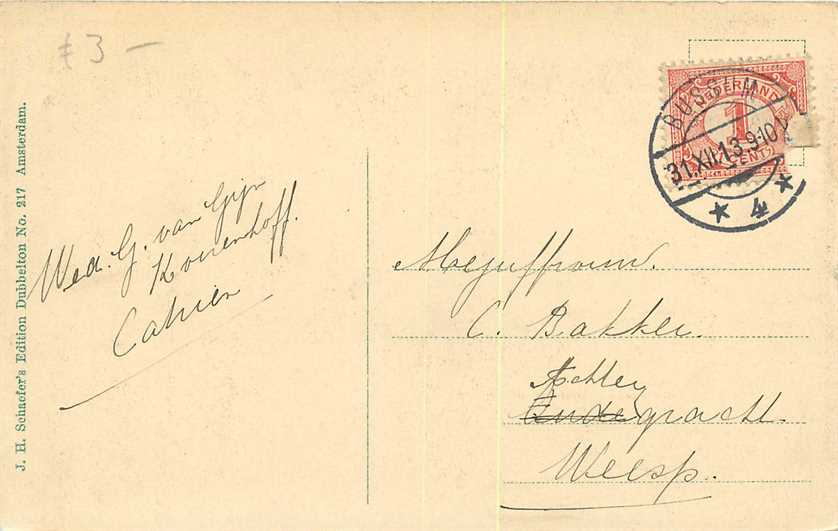 £ 3 —
J. H. Schaefer's Edition Dubbelton No. 217 Amsterdam.
Wed. G. van Gijn
Kouenhoff.
NEDERLAND
1
CENT
BUSSUM
31.XII.13.9-10V
4
Mejuffrouw.
C. Bakker.
Achter
gracht.
Weesp.